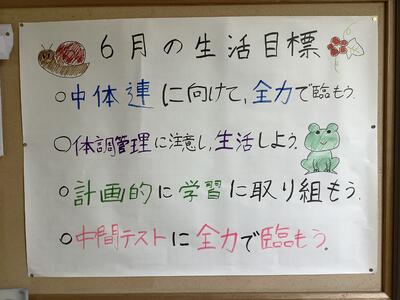 6月の生活目標
○中体連に向けて,全力で臨もう.
○体調管理に注意し,生活しよう.
○計画的に学習に取り組もう.
○中間テストに全力で臨もう.